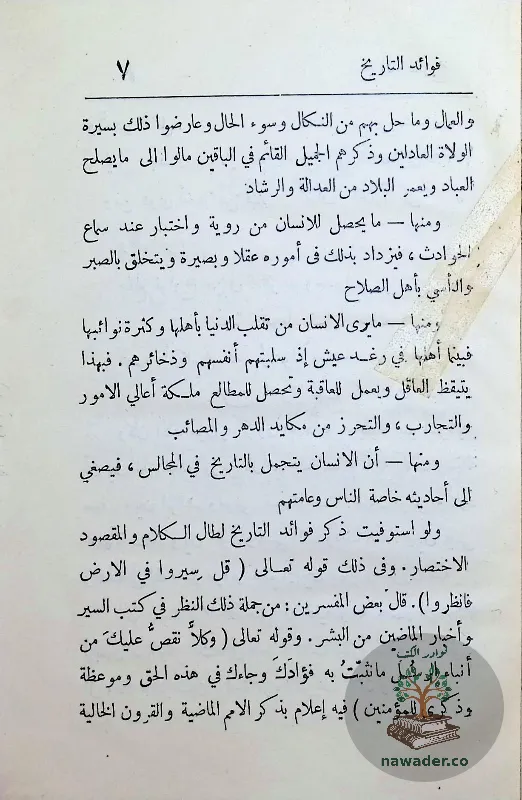 فوائد التاريخ ٧
والعمال وما حل بهم من النكال وسوء الحال وعارضوا ذلك بسيرة
الولاة العادلين وذكرهم الجميل القائم في الباقين مالوا الى مايصلح
العباد ويعمر البلاد من العدالة والرشاد
ومنها — مايحصل للانسان من روية واختبار عند سماع
الحوادث ، فيزداد بذلك فى أموره عقلا وبصيرة ويتخلق بالصبر
والتأسي بأهل الصلاح
ومنها — مايرى الانسان من تقلب الدنيا بأهلها وكثرة نوائبها
فبينما أهلها في رغد عيش إذ سلبتهم أنفسهم وذخائرهم . فبهذا
يتيقظ العاقل ويعمل للعاقبة وتحصل للمطالع ملكة أعالي الامور
والتجارب ، والتحرز من مكايد الدهر والمصائب
ومنها — أن الانسان يتجمل بالتاريخ في المجالس ، فيصغي
الى أحاديثه خاصة الناس وعامتهم
ولو استوفيت ذكر فوائد التاريخ لطال الكلام والمقصود
الاختصار . وفى ذلك قوله تعالى ( قل سيروا في الارض
فانظروا ) . قال بعض المفسرين : من جملة ذلك النظر في كتب السير
وأخبار الماضين من البشر . وقوله تعالى ( وكلاًّ نقصُّ عليكَ من
أنباءِ الرسُلِ مانُثبّتُ به فؤادَكَ وجاءك في هذه الحق وموعظة
وذكرى للمؤمنين ) فيه إعلام بذكر الامم الماضية والقرون الخالية
نوادر الكتب
nawader.co